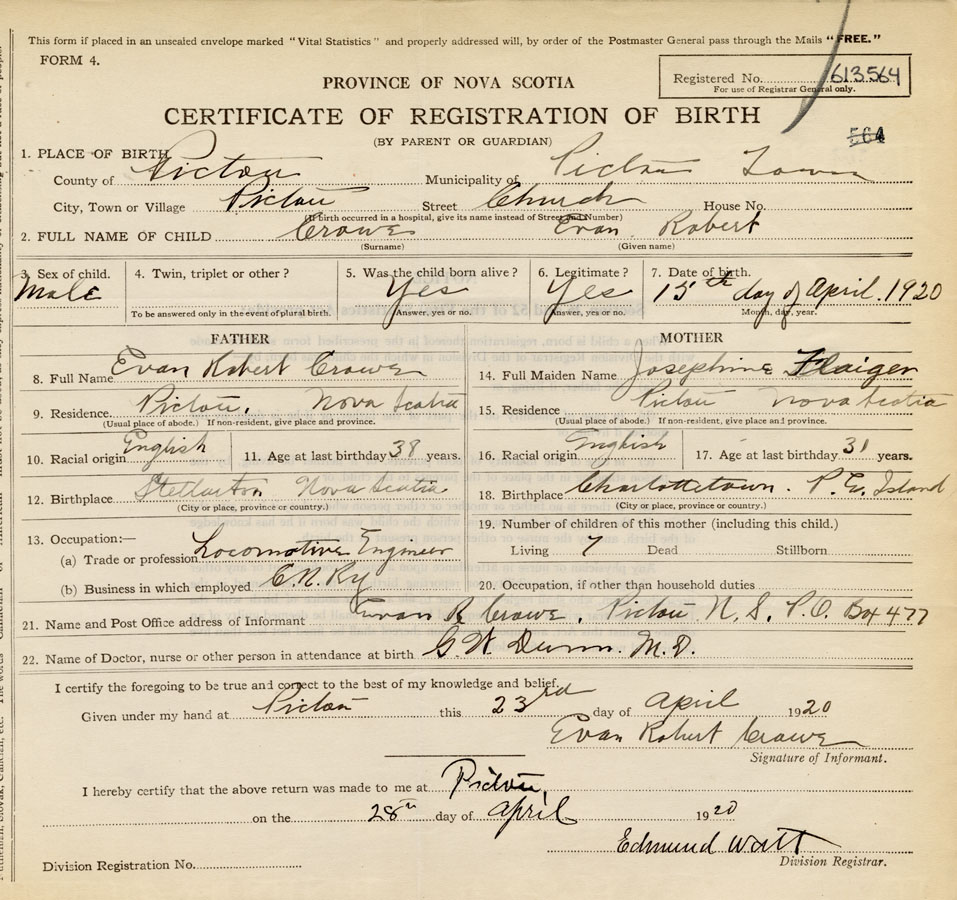 This form if placed in an unsealed envelope marked "Vital Statistics" and properly addressed will, by order of the Postmaster General pass through the Mails "FREE."
FORM 4.
Registered No. 613564
For use of Registrar General only.
PROVINCE OF NOVA SCOTIA
CERTIFICATE OF REGISTRATION OF BIRTH
(BY PARENT OR GUARDIAN)
564
1. PLACE OF BIRTH
County of Pictou Municipality of Pictou Town
City, Town or Village Pictou Street Church House No.
(If birth occurred in a hospital, give its name instead of Street and Number)
2. FULL NAME OF CHILD Crowe Evan Robert
(Surname) (Given name)
3. Sex of child. 4. Twin, triplet or other? 5. Was the child born alive? 6. Legitimate? 7. Date of birth.
Male Yes Yes 15th day of April. 1920
To be answered only in the event of plural birth. Answer, yes or no. Answer, yes or no. Month, day, year.
FATHER
8. Full Name Evan Robert Crowe
9. Residence Pictou, Nova Scotia
(Usual place of abode.) If non-resident, give place and province.
10. Racial origin English 11. Age at last birthday 38 years.
12. Birthplace Stellarton Nova Scotia
(City or place, province or country.)
13. Occupation:—
(a) Trade or profession Locomotive Engineer
(b) Business in which employed C.N.Ry
MOTHER
14. Full Maiden Name Josephine Flaiger
15. Residence Pictou Nova Scotia
(Usual place of abode.) If non-resident, give place and province.
16. Racial origin English 17. Age at last birthday 31 years.
18. Birthplace Charlottetown. P.E. Island
(City or place, province or country.)
19. Number of children of this mother (including this child.)
Living 7 Dead Stillborn
20. Occupation, if other than household duties
21. Name and Post Office address of Informant Evan R Crowe, Pictou N.S. P.O. Box 477
22. Name of Doctor, nurse or other person in attendance at birth G.W. Dunn. M.D.
I certify the foregoing to be true and correct to the best of my knowledge and belief.
Given under my hand at Pictou this 23rd day of April 1920
Evan Robert Crowe
Signature of Informant.
I hereby certify that the above return was made to me at Pictou,
on the 28th day of April 1920
Edmund Watt
Division Registrar.
Division Registration No.